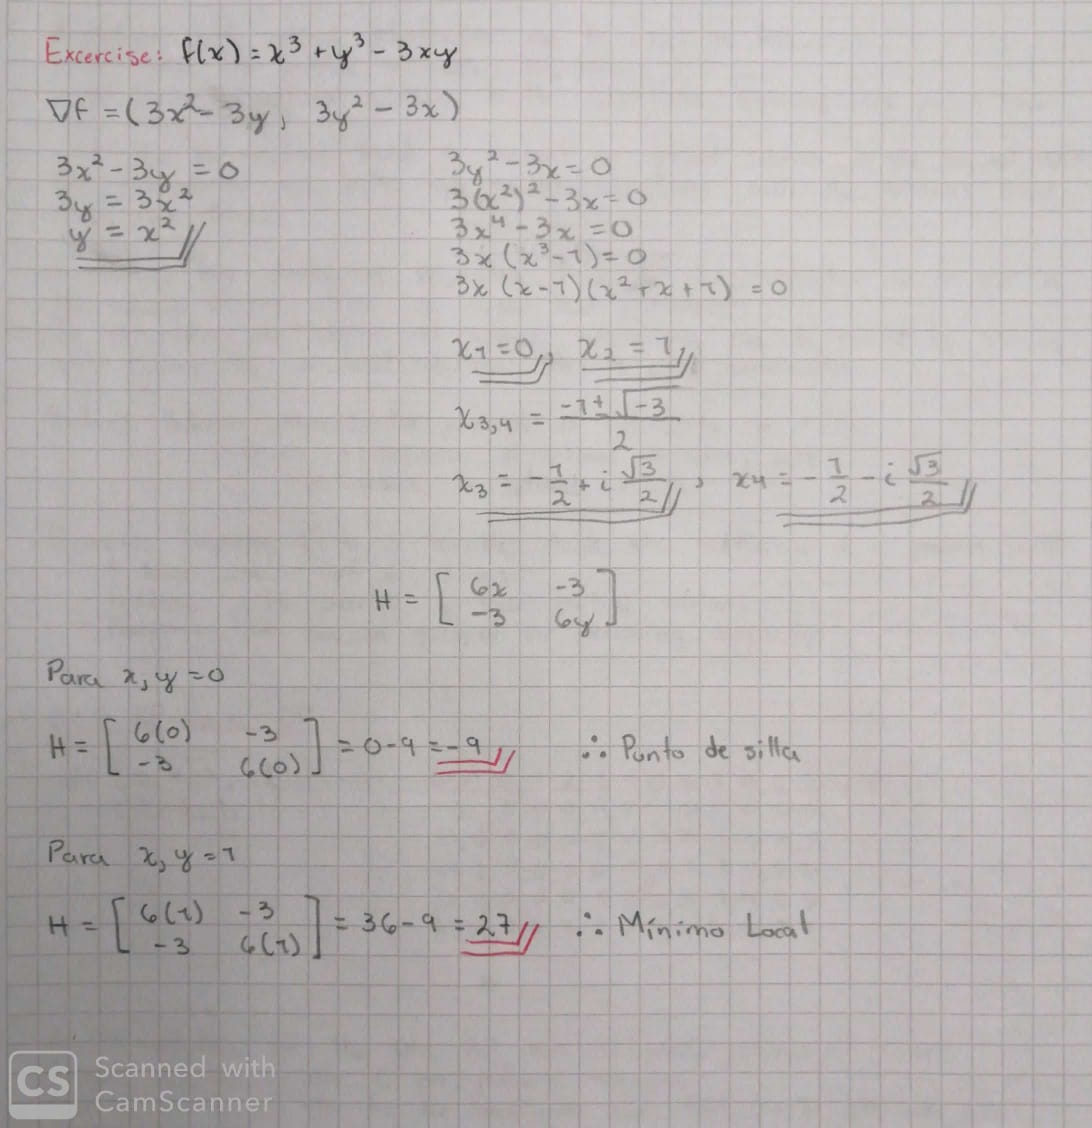 Excercise: f(x) = x³ + y³ - 3xy
∇f = (3x² - 3y, 3y² - 3x)
3x² - 3y = 0
3y = 3x²
y = x²
3y² - 3x = 0
3(x²)² - 3x = 0
3x⁴ - 3x = 0
3x (x³ - 1) = 0
3x (x - 1)(x² + x + 1) = 0
x₁ = 0, x₂ = 1
x₃,₄ = (-1 ± √-3) / 2
x₃ = -1/2 + i √3/2, x₄ = -1/2 - i √3/2
H = [ 6x -3
-3 6y ]
Para x, y = 0
H = [ 6(0) -3
-3 6(0) ] = 0 - 9 = -9 ∴ Punto de silla
Para x, y = 1
H = [ 6(1) -3
-3 6(1) ] = 36 - 9 = 27 ∴ Mínimo Local
CS Scanned with
CamScanner